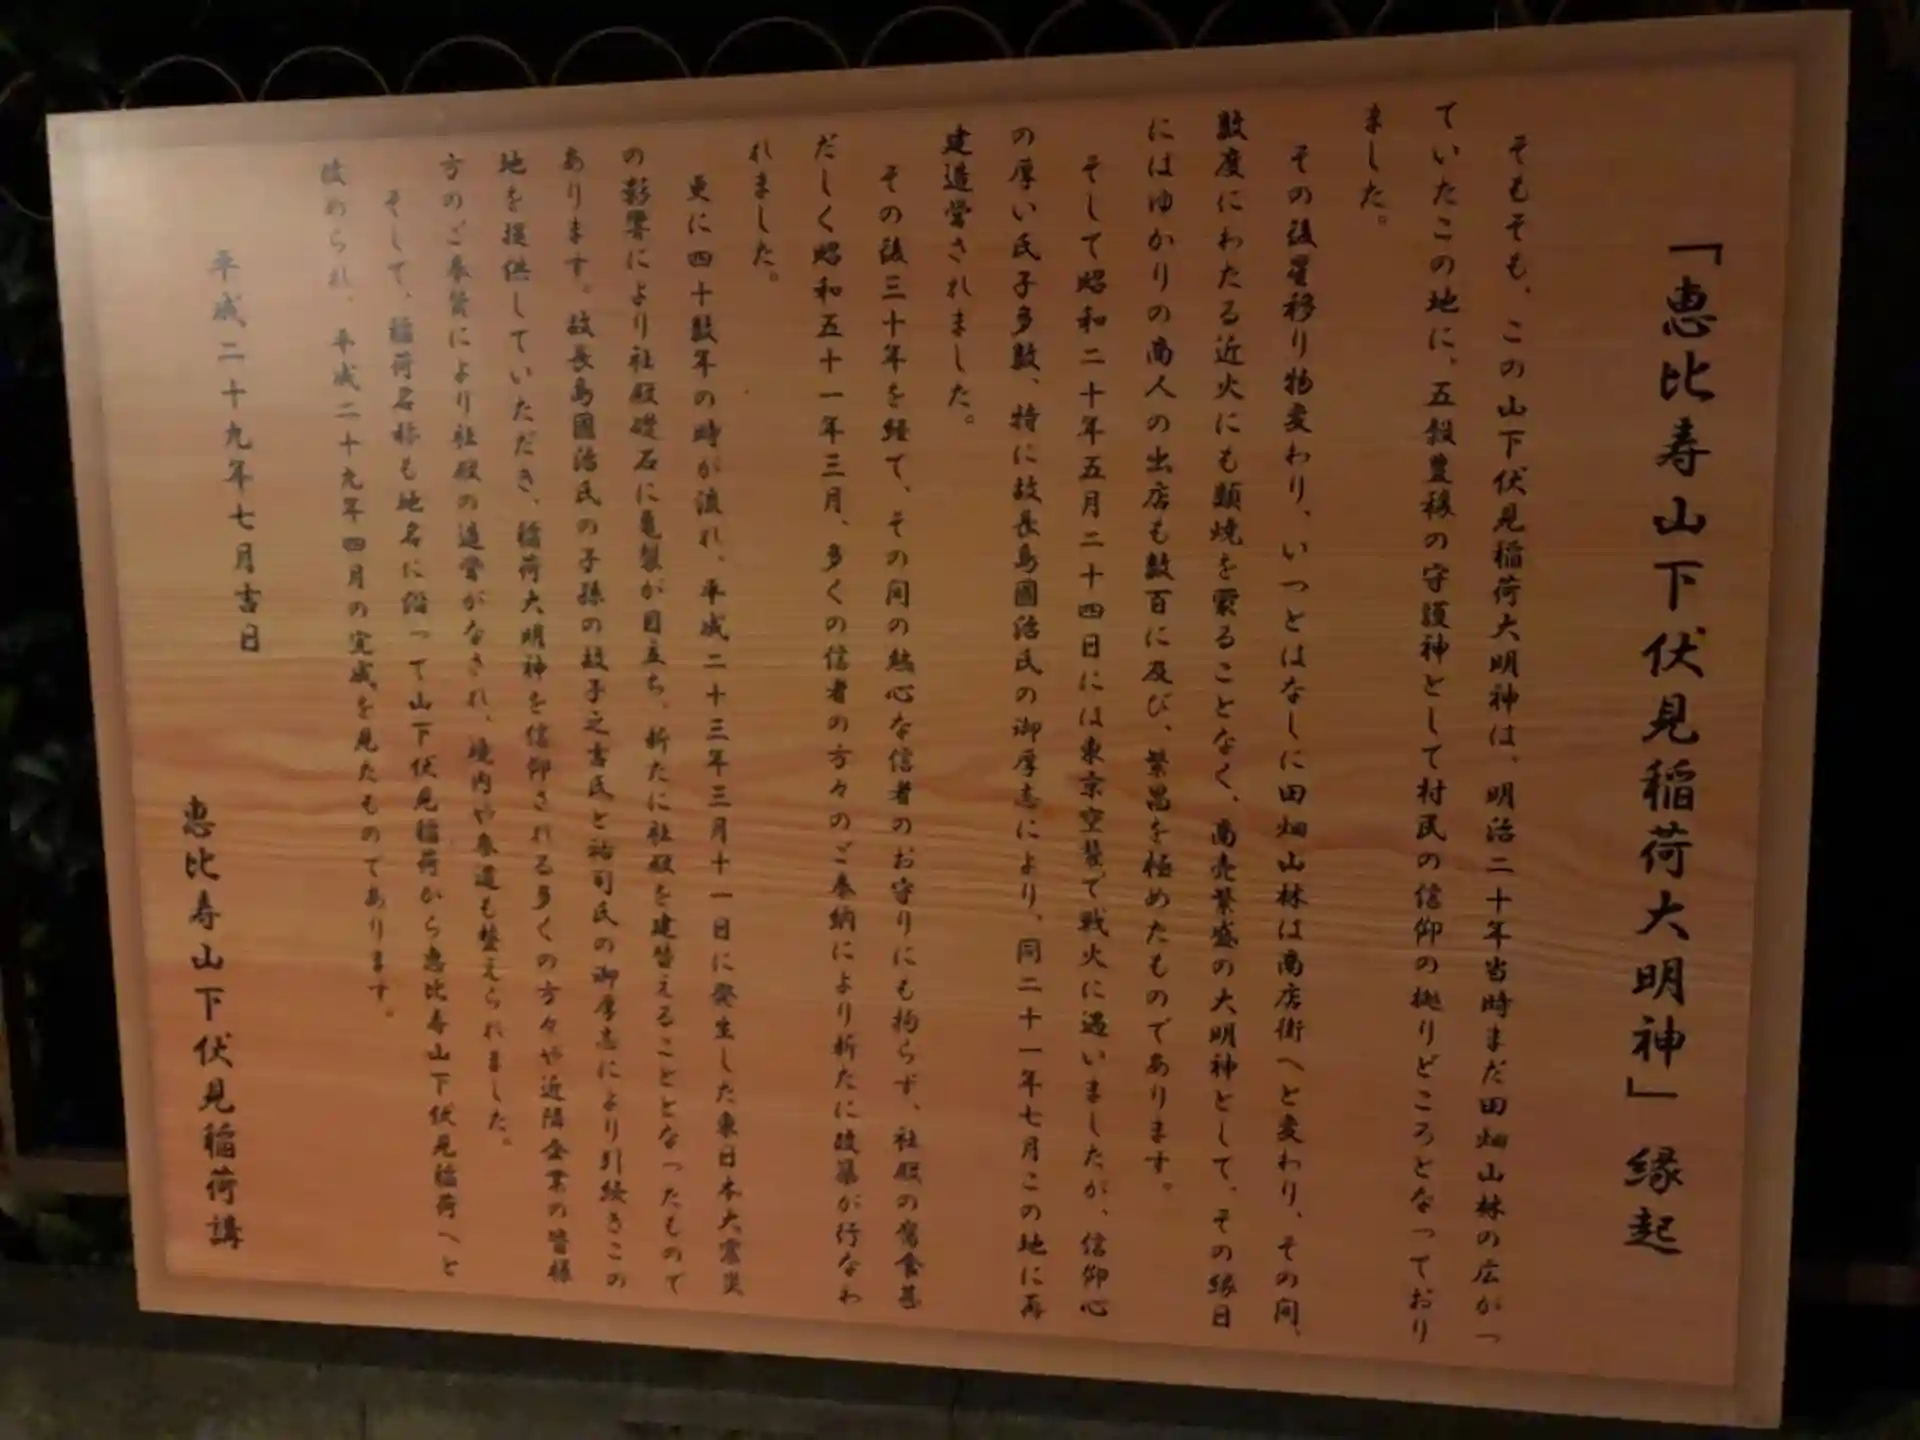 「恵比寿山下伏見稲荷大明神」縁起
そもそも、この山下伏見稲荷大明神は、明治二十年当時まだ田畑山林の広がっ
ていたこの地に、五穀豊穣の守護神として村民の信仰の拠りどころとなっており
ました。
その後星移り物変わり、いつとはなしに田畑山林は商店街へと変わり、その間、
数度にわたる近火にも類焼を蒙ることなく、商売繁盛の大明神として、その縁日
にはゆかりの商人の出店も数百に及び、繁昌を極めたものであります。
そして昭和二十年五月二十四日には東京空襲で戦火に遇いましたが、信仰心
の厚い氏子多数、特に故長島國治氏の御厚志により、同二十一年七月この地に再
建造営されました。
その後三十年を経て、その間の熱心な信者のお守りにも拘らず、社殿の腐食甚
だしく昭和五十一年三月、多くの信者の方々のご奉納により新たに改築が行なわ
れました。
更に四十数年の時が流れ、平成二十三年三月十一日に発生した東日本大震災
の影響により社殿礎石に亀裂が目立ち、新たに社殿を建替えることとなったもので
あります。故長島國治氏の子孫の故子之吉氏と祐司氏の御厚志により引続きこの
地を提供していただき、稲荷大明神を信仰される多くの方々や近隣企業の皆様
方のご奉賛により社殿の造営がなされ、境内や参道も整えられました。
そして、稲荷名称も地名に沿って山下伏見稲荷から恵比寿山下伏見稲荷へと
改められ、平成二十九年四月の完成を見たものであります。
平成二十九年七月吉日
恵比寿山下伏見稲荷講